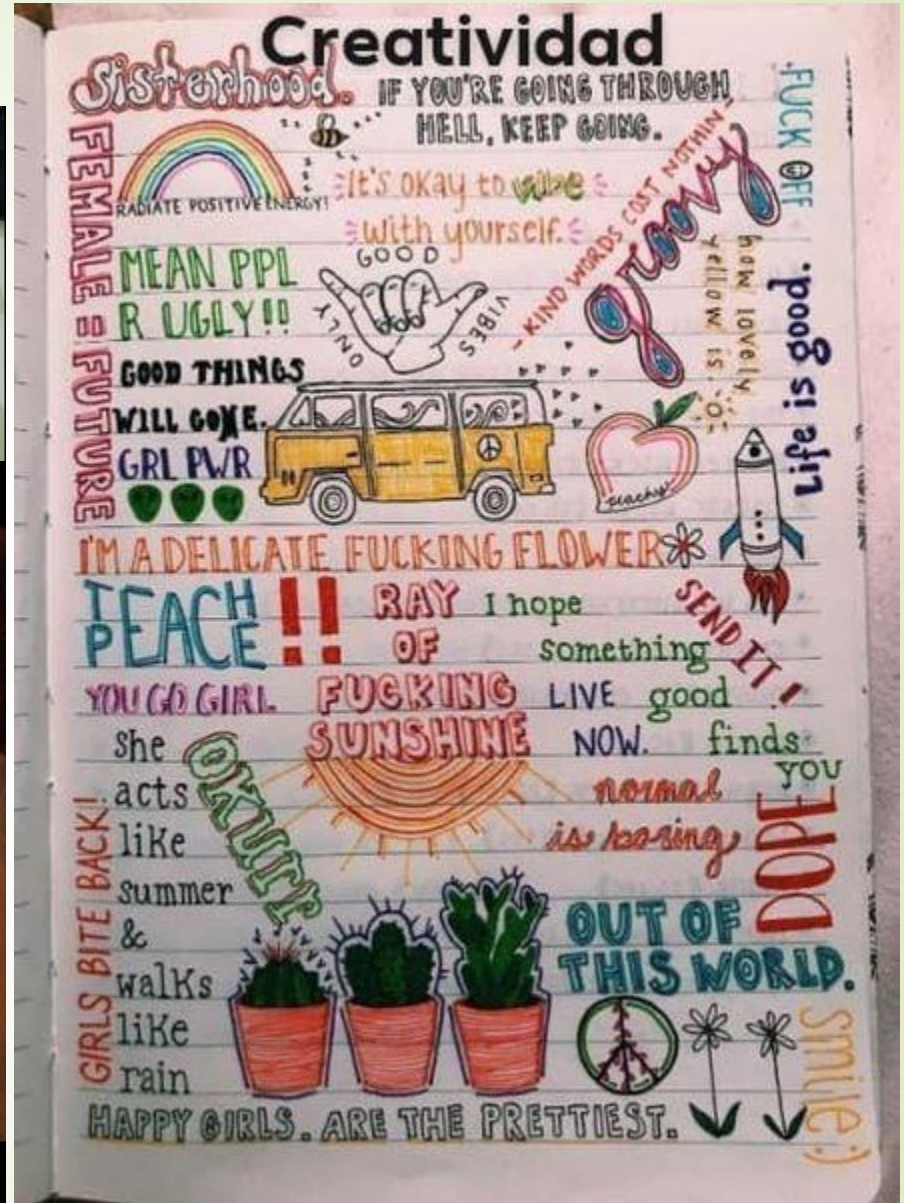 Creatividad
Sisterhood.
IF YOU'RE GOING THROUGH
HELL, KEEP GOING.
FUCK OFF
FEMALE = FUTURE
RADIATE POSITIVE ENERGY!
It's okay to vibe
with yourself.
- KIND WORDS COST NOTHIN -
groovy
how lovely
yellow is.
Life is good.
MEAN PPL
R UGLY!!
GOOD
ONLY
VIBES
GOOD THINGS
WILL COME.
GRL PWR
peachy
I'M A DELICATE FUCKING FLOWER
TEACH
PEACE
!!
RAY
OF
FUCKING
SUNSHINE
I hope
something
good
finds
you
SEND IT!
YOU GO GIRL
LIVE
NOW.
she
acts
like
summer
&
walks
like
rain
OKURR
normal
is boring
DOPE
GIRLS BITE BACK!
OUT OF
THIS WORLD.
smile :)
HAPPY GIRLS. ARE THE PRETTIEST.